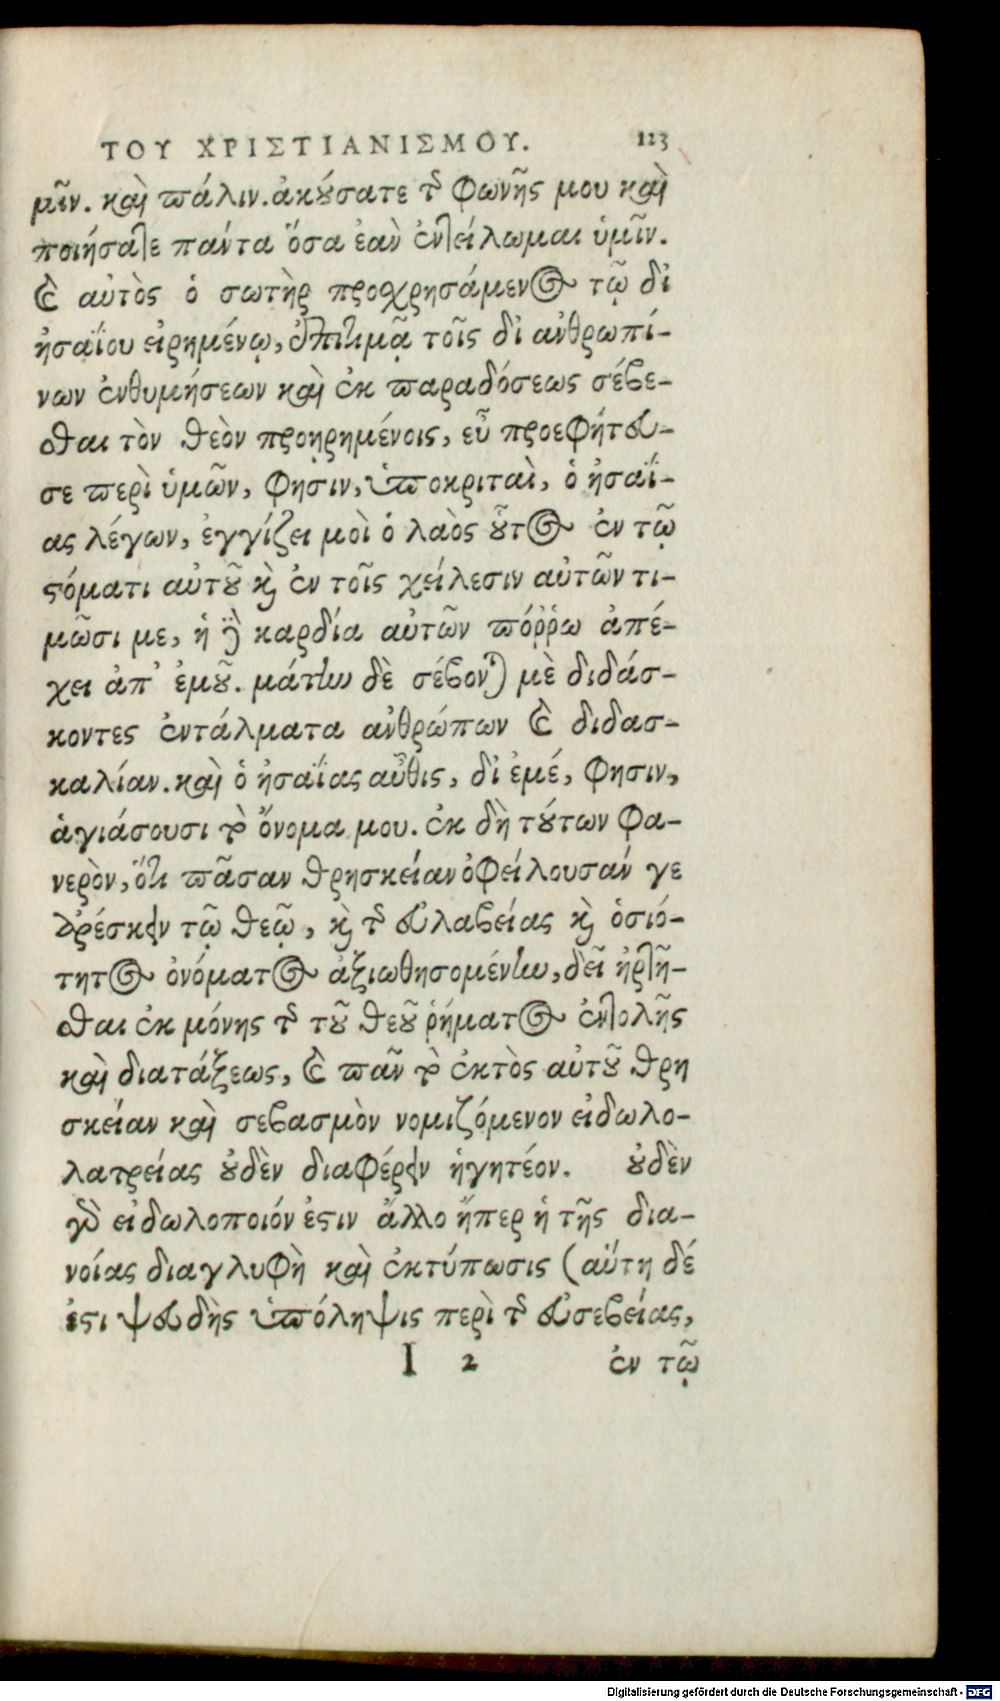 ΤΟΥ ΧΡΙΣΤΙΑΝΙΣΜΟΥ. 123
μῖν. καὶ πάλιν. ἀκούσατε τῆς φωνῆς μου καὶ
ποιήσατε πάντα ὅσα ἐὰν ἐντείλωμαι ὑμῖν.
καὶ αὐτὸς ὁ σωτὴρ προχρησάμενος τῷ δι
ἠσαΐου εἰρημένῳ, ἐπιτιμᾷ τοῖς δι ἀνθρωπί-
νων ἐνθυμήσεων καὶ ἐκ παραδόσεως σέβε-
σθαι τὸν θεὸν προῃρημένοις, εὖ προεφήτευ-
σε περὶ ὑμῶν, φησιν, ὑποκριταὶ, ὁ ἠσαΐ-
ας λέγων, ἐγγίζει μοὶ ὁ λαὸς οὗτος ἐν τῷ
στόματι αὐτοῦ καὶ ἐν τοῖς χείλεσιν αὐτῶν τι-
μῶσι με, ἡ δὲ καρδία αὐτῶν πόῤῥω ἀπέ-
χει ἀπ' ἐμοῦ. μάτην δὲ σέβονται μὲ διδάσ-
κοντες ἐντάλματα ἀνθρώπων καὶ διδασ-
καλίαν. καὶ ὁ ἠσαΐας αὖθις, δι ἐμέ, φησιν,
ἁγιάσουσι τὸ ὄνομα μου. ἐκ δὴ τούτων φα-
νερὸν, ὅτι πᾶσαν θρησκείαν ὀφείλουσάν γε
ἀρέσκειν τῷ θεῷ, καὶ τῆς εὐλαβείας καὶ ὁσιό-
τητος ὀνόματος ἀξιωθησομένην, δεῖ ἠρτῆ-
σθαι ἐκ μόνης τῆς τοῦ θεοῦ ῥήματος ἐντολῆς
καὶ διατάξεως, καὶ πᾶν τὸ ἐκτὸς αὐτοῦ θρη
σκείαν καὶ σεβασμὸν νομιζόμενον εἰδωλο-
λατρείας οὐδὲν διαφέρειν ἡγητέον. οὐδὲν
γὰρ εἰδωλοποιόν ἐστιν ἄλλο ἤπερ ἡ τῆς δια-
νοίας διαγλυφὴ καὶ ἐκτύπωσις (αὕτη δέ
ἐστι ψευδὴς ὑπόληψις περὶ τῆς εὐσεβείας,
I 2 ἐν τῷ
Digitalisierung gefördert durch die Deutsche Forschungsgemeinschaft - DFG